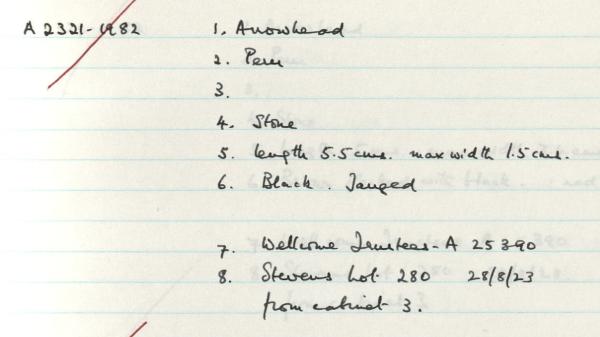 A 2321-1982 1. Arrowhead
2. Peru
3.
4. Stone
5. length 5.5cms. max width 1.5cms.
6. Black. Tanged
7. Wellcome Trustees-A 25390
8. Stevens Lot. 280 28/8/23
from cabinet 3.